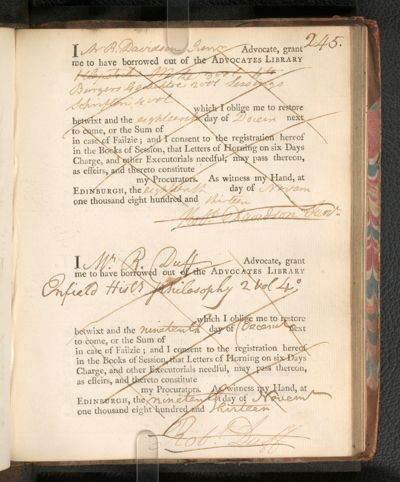 245.
I Mr R. Davidson Advocate, grant
me to have borrowed out of the ADVOCATES LIBRARY
Burgers 2 vol Lessings
Schriften 4 vol
which I oblige me to restore
betwixt and the eighteenth day of Decem next
to come, or the Sum of
in case of Failzie; and I consent to the registration hereof
in the Books of Session, that Letters of Horning on six Days
Charge, and other Executorials needful, may pass thereon,
as effeirs, and thereto constitute
my Procurators. As witness my Hand, at
EDINBURGH, the eighteenth day of Novem
one thousand eight hundred and thirteen
Davidson
I Mr R. Duff Advocate, grant
me to have borrowed out of the ADVOCATES LIBRARY
Enfield Hist. Philosophy 2 vol 4o
which I oblige me to restore
betwixt and the nineteenth day of Decemr next
to come, or the Sum of
in case of Failzie; and I consent to the registration hereof
in the Books of Session, that Letters of Horning on six Days
Charge, and other Executorials needful, may pass thereon,
as effeirs, and thereto constitute
my Procurators. As witness my Hand, at
EDINBURGH, the nineteenth day of Novemr
one thousand eight hundred and thirteen
Robt. Duff